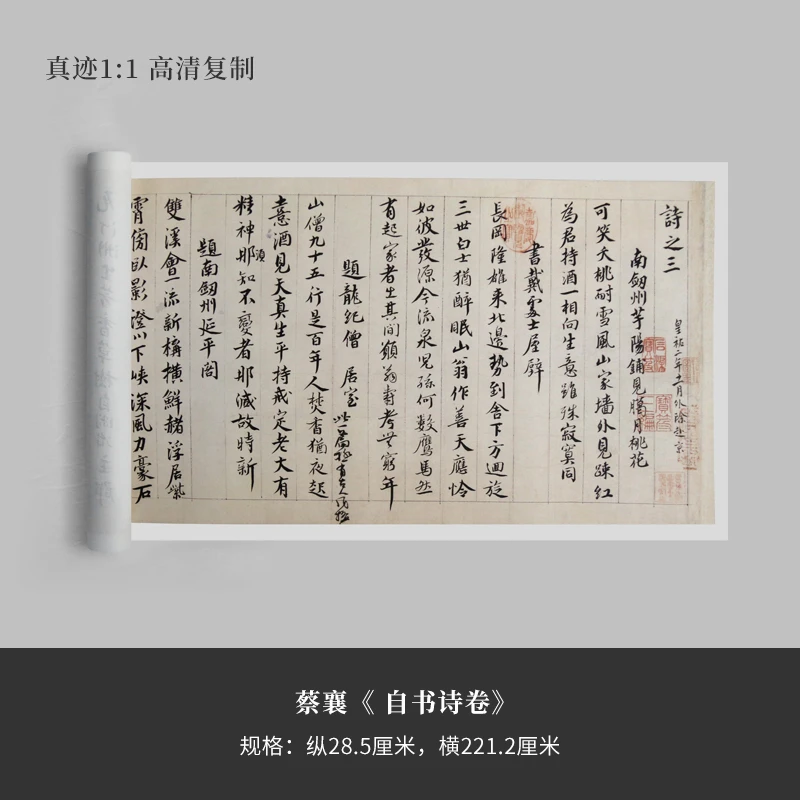 真迹1:1 高清复制
詩之三
皇祐二年十一月外除赴京
南劒州芋陽鋪見臘月桃花
可笑夭桃耐雪風山家墻外見踈紅
為君持酒一相向生意雖殊寂寞同
書戴處士屋壁
長岡隆雄來北邊勢到舍下方迴旋
三世白士猶醉眠山翁作善天應怜
如彼發源今流泉兒孫何數鷹馬然
有起家者出其間願翁壽考無窮年
題龍紀僧居室 此一篇極有古人風格
山僧九十五行是百年人焚香猶夜起
憙酒見天真生平持戒定老大有
精神那須知不變者那減故時新
題南劒州延平閣
雙溪會一流新構橫鮮赭浮居紫
霄傍臥影澄川下峽深風力豪石
蔡襄《 自书诗卷》
规格：纵28.5厘米，横221.2厘米